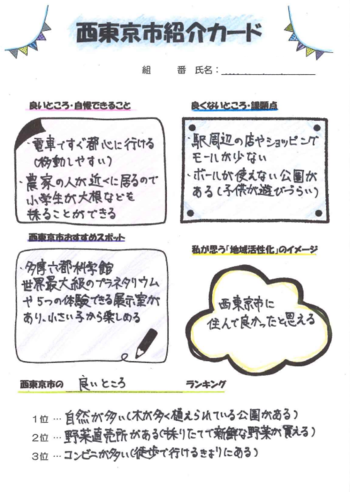 西東京市紹介カード
組　番　氏名：
良いところ・自慢できること
・電車ですぐ都心に行ける
(移動しやすい)
・農家の人が近くに居るので
小学生が大根などを
採ることができる
良くないところ・課題点
・駅周辺の店やショッピング
モールが少ない
・ボールが使えない公園が
ある(子供が遊びづらい)
西東京市おすすめスポット
・多摩六都科学館
世界最大級のプラネタリウム
や5つの体験できる展示室が
あり、小さい子から楽しめる
私が思う「地域活性化」のイメージ
西東京市に
住んで良かったと思える
西東京市の 良いところ ランキング
1位 … 自然が多い(木が多く植えられている公園がある)
2位 … 野菜直売所がある(採りたてで新鮮な野菜が買える)
3位 … コンビニが多い(徒歩で行けるきょりにある)